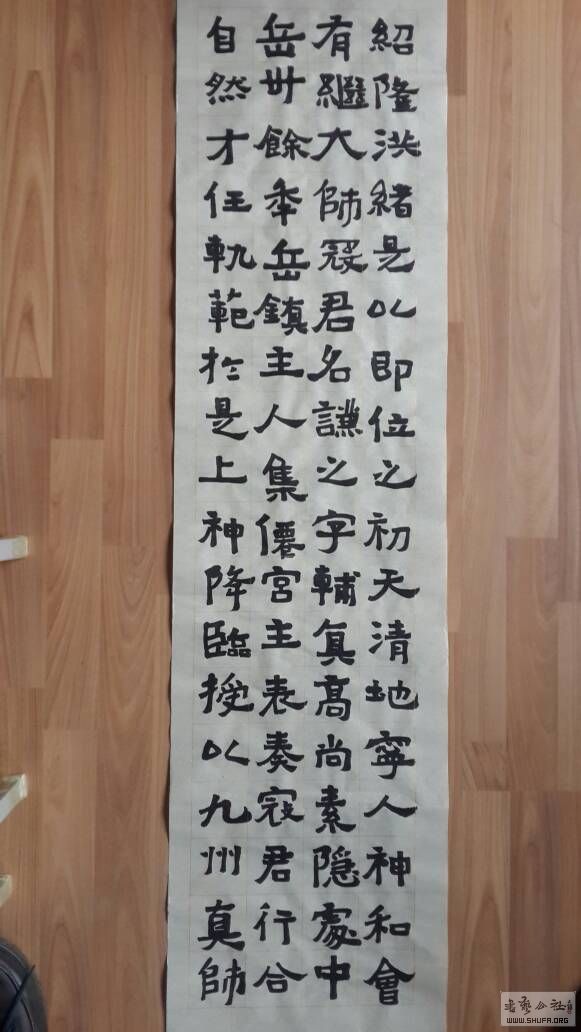 紹隆洪緒是以即位之初天清地寧人神和會
有繼大師寇君名謙之字輔真高尚素隱處中
岳卅餘年岳鎮主人集僊宮主表奏寇君行合
自然才任軌範於是上神降臨授以九州真師
书艺公社
WWW.SHUFA.ORG